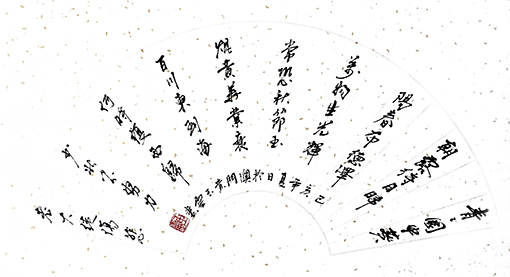 青青園中葵
朝露待日晞
陽春布德澤
萬物生光輝
常恐秋節至
焜黃華葉衰
百川東到海
何時復西歸
少壯不努力
老大徒傷悲
己亥年夏日於澳門黃